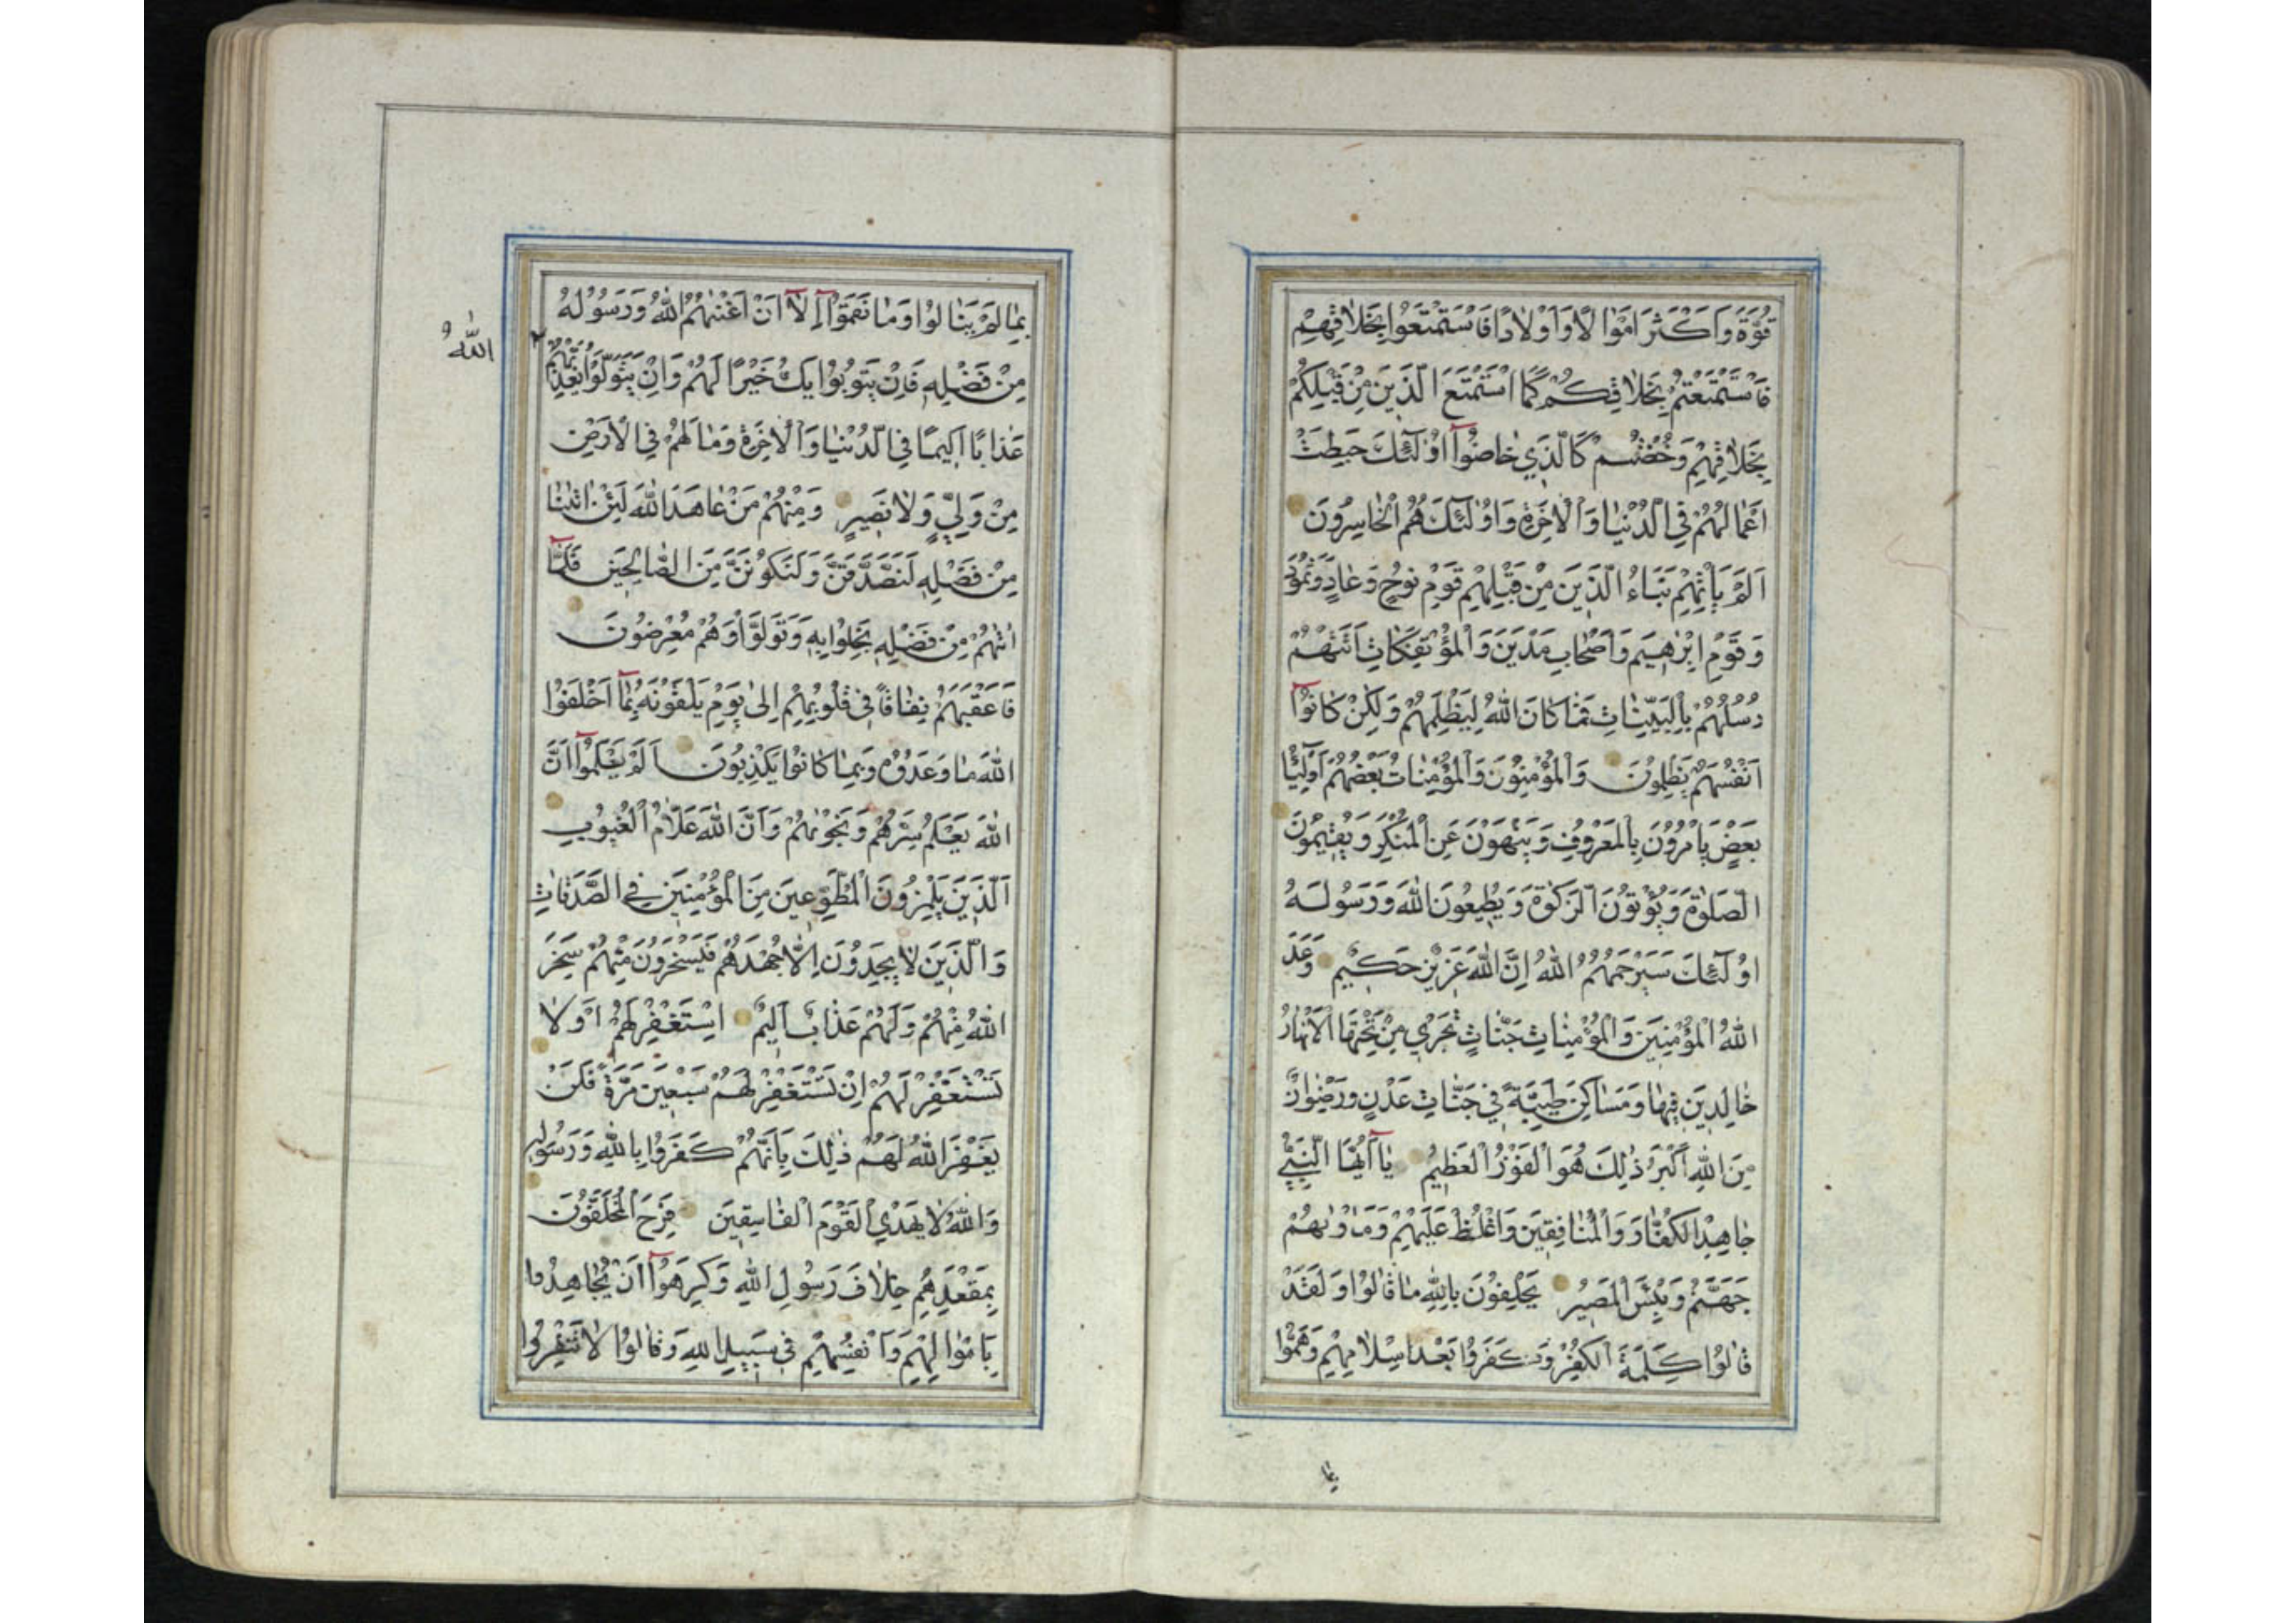 قُوَّةً وَاَكْثَرَ اَمْوَالًا وَاَوْلَادًا فَاسْتَمْتَعُوا بِخَلَاقِهِمْ
فَاسْتَمْتَعْتُمْ بِخَلَاقِكُمْ كَمَا اسْتَمْتَعَ الَّذِينَ مِنْ قَبْلِكُمْ
بِخَلَاقِهِمْ وَخُضْتُمْ كَالَّذِي خَاضُوا اُولٰئِكَ حَبِطَتْ
اَعْمَالُهُمْ فِي الدُّنْيَا وَالْاٰخِرَةِ وَاُولٰئِكَ هُمُ الْخَاسِرُونَ
اَلَمْ يَأْتِهِمْ نَبَاُ الَّذِينَ مِنْ قَبْلِهِمْ قَوْمِ نُوحٍ وَعَادٍ وَثَمُودَ
وَقَوْمِ اِبْرٰهِيمَ وَاَصْحَابِ مَدْيَنَ وَالْمُؤْتَفِكَاتِ اَتَتْهُمْ
رُسُلُهُمْ بِالْبَيِّنَاتِ فَمَا كَانَ اللّٰهُ لِيَظْلِمَهُمْ وَلٰكِنْ كَانُوا
اَنْفُسَهُمْ يَظْلِمُونَ وَالْمُؤْمِنُونَ وَالْمُؤْمِنَاتُ بَعْضُهُمْ اَوْلِيَاءُ
بَعْضٍ يَأْمُرُونَ بِالْمَعْرُوفِ وَيَنْهَوْنَ عَنِ الْمُنْكَرِ وَيُقِيمُونَ
الصَّلٰوةَ وَيُؤْتُونَ الزَّكٰوةَ وَيُطِيعُونَ اللّٰهَ وَرَسُولَهُ
اُولٰئِكَ سَيَرْحَمُهُمُ اللّٰهُ اِنَّ اللّٰهَ عَزِيزٌ حَكِيمٌ وَعَدَ
اللّٰهُ الْمُؤْمِنِينَ وَالْمُؤْمِنَاتِ جَنَّاتٍ تَجْرِي مِنْ تَحْتِهَا الْاَنْهَارُ
خَالِدِينَ فِيهَا وَمَسَاكِنَ طَيِّبَةً فِي جَنَّاتِ عَدْنٍ وَرِضْوَانٌ
مِنَ اللّٰهِ اَكْبَرُ ذٰلِكَ هُوَ الْفَوْزُ الْعَظِيمُ يَا اَيُّهَا النَّبِيُّ
جَاهِدِ الْكُفَّارَ وَالْمُنَافِقِينَ وَاغْلُظْ عَلَيْهِمْ وَمَأْوٰيهُمْ
جَهَنَّمُ وَبِئْسَ الْمَصِيرُ يَحْلِفُونَ بِاللّٰهِ مَا قَالُوا وَلَقَدْ
قَالُوا كَلِمَةَ الْكُفْرِ وَكَفَرُوا بَعْدَ اِسْلَامِهِمْ وَهَمُّوا
بِمَا
بِمَا لَمْ يَنَالُوا وَمَا نَقَمُوا اِلَّا اَنْ اَغْنٰيهُمُ اللّٰهُ وَرَسُولُهُ
مِنْ فَضْلِهِ فَاِنْ يَتُوبُوا يَكُ خَيْرًا لَهُمْ وَاِنْ يَتَوَلَّوْا يُعَذِّبْهُمُ
اللّٰهُ
عَذَابًا اَلِيمًا فِي الدُّنْيَا وَالْاٰخِرَةِ وَمَا لَهُمْ فِي الْاَرْضِ
مِنْ وَلِيٍّ وَلَا نَصِيرٍ وَمِنْهُمْ مَنْ عَاهَدَ اللّٰهَ لَئِنْ اٰتٰينَا
مِنْ فَضْلِهِ لَنَصَّدَّقَنَّ وَلَنَكُونَنَّ مِنَ الصَّالِحِينَ فَلَمَّا
اٰتٰيهُمْ مِنْ فَضْلِهِ بَخِلُوا بِهِ وَتَوَلَّوْا وَهُمْ مُعْرِضُونَ
فَاَعْقَبَهُمْ نِفَاقًا فِي قُلُوبِهِمْ اِلٰى يَوْمِ يَلْقَوْنَهُ بِمَا اَخْلَفُوا
اللّٰهَ مَا وَعَدُوهُ وَبِمَا كَانُوا يَكْذِبُونَ اَلَمْ يَعْلَمُوا اَنَّ
اللّٰهَ يَعْلَمُ سِرَّهُمْ وَنَجْوٰيهُمْ وَاَنَّ اللّٰهَ عَلَّامُ الْغُيُوبِ
اَلَّذِينَ يَلْمِزُونَ الْمُطَّوِّعِينَ مِنَ الْمُؤْمِنِينَ فِي الصَّدَقَاتِ
وَالَّذِينَ لَا يَجِدُونَ اِلَّا جُهْدَهُمْ فَيَسْخَرُونَ مِنْهُمْ سَخِرَ
اللّٰهُ مِنْهُمْ وَلَهُمْ عَذَابٌ اَلِيمٌ اِسْتَغْفِرْ لَهُمْ اَوْ لَا
تَسْتَغْفِرْ لَهُمْ اِنْ تَسْتَغْفِرْ لَهُمْ سَبْعِينَ مَرَّةً فَلَنْ
يَغْفِرَ اللّٰهُ لَهُمْ ذٰلِكَ بِاَنَّهُمْ كَفَرُوا بِاللّٰهِ وَرَسُولِهِ
وَاللّٰهُ لَا يَهْدِي الْقَوْمَ الْفَاسِقِينَ فَرِحَ الْمُخَلَّفُونَ
بِمَقْعَدِهِمْ خِلَافَ رَسُولِ اللّٰهِ وَكَرِهُوا اَنْ يُجَاهِدُوا
بِاَمْوَالِهِمْ وَاَنْفُسِهِمْ فِي سَبِيلِ اللّٰهِ وَقَالُوا لَا تَنْفِرُوا